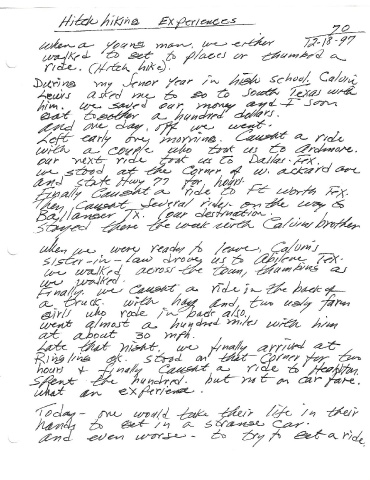 Hitch hiking Experiences
70
12-18-97
when a young man. we either
walked to get to places or thumbed a
ride. (Hitch hike).
During my Senor year in high school, Calvin
Lewis asked me to go to South Texas with
him. we saved our money and I soon
got together a hundred dollars.
and one day. off we went.
Left early one morning. Caught a ride
with a couple who took us to Ardmore.
our next ride took us to Dallas. Tx.
we stood at the corner of w. ackard ave
and state Hwy 77 for hours.
Finally caught a ride to Ft Worth Tx.
Then, Caught several rides on the way to
Ballanger Tx. (our destination)
stayed there the week with Calvins brother
when we were ready to leave, Calvin's
sister-in-law drove us to Abilene Tx.
we walked across the town, thumbing as
we walked.
Finally we caught a ride in the back of
a truck. with hay and, two ugly farm
girls who rode in back also.
went almost a hundred miles with him
at about 30 mph.
Late that night, we finally arrived at
Ringling ok. stood on that corner for two
hours & finally caught a ride to Healdton
spent the hundred. but not on car fare.
what an experience.
Today - one would take their life in their
hands to get in a strange car.
and even worse - to try to get a ride.